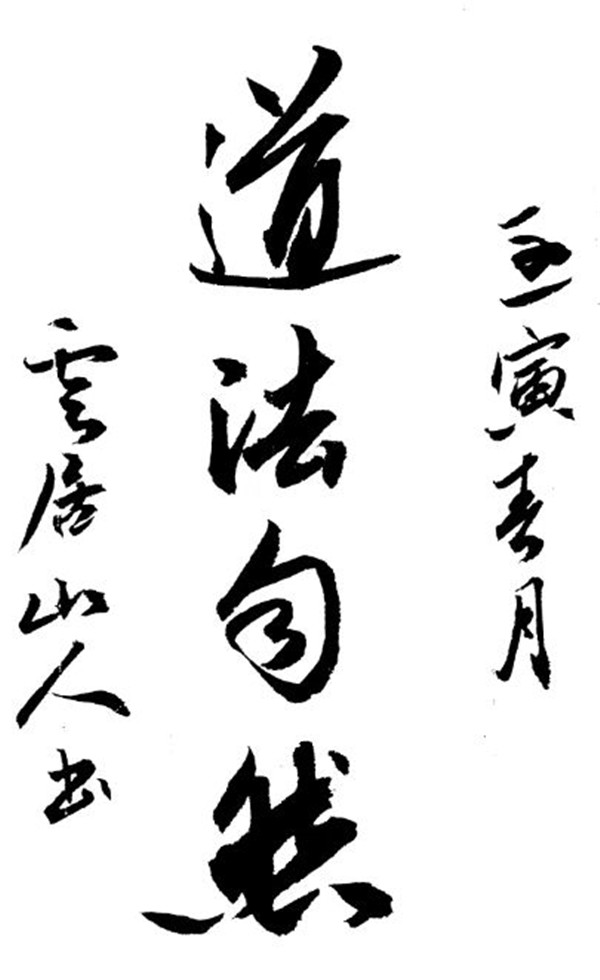 壬寅春月
道法自然
雲居山人书